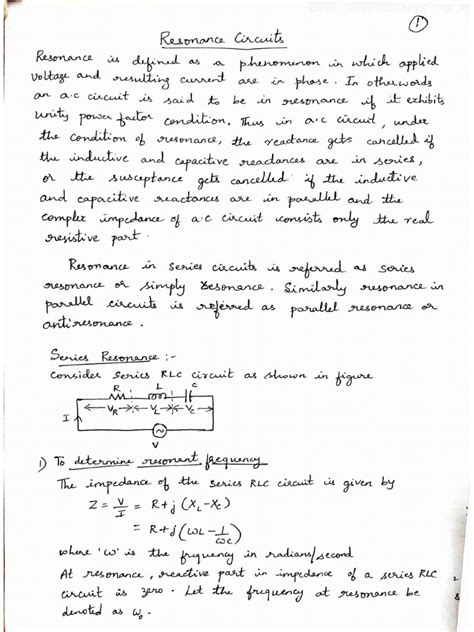 1
Resonance Circuits
Resonance is defined as a phenomenon in which applied
voltage and resulting current are in phase. In other words
an a.c circuit is said to be in resonance if it exhibits
unity power factor condition. Thus in a.c circuit, under
the condition of resonance, the reactance gets cancelled if
the inductive and capacitive reactances are in series,
or the susceptance gets cancelled if the inductive
and capacitive reactances are in parallel and the
complex impedance of a.c circuit consists only the real
resistive part.
Resonance in series circuits is referred as series
resonance or simply resonance. Similarly resonance in
parallel circuits is referred as parallel resonance or
antiresonance.
Series Resonance :-
Consider series RLC circuit as shown in figure
R L C
V_R V_L V_C
I
V
1) To determine resonant frequency
The impedance of the series RLC circuit is given by
Z = V/I = R+j (X_L-X_C)
= R+j(ωL-1/ωC)
where 'ω' is the frequency in radians/second
At resonance, reactive part in impedance of a series RLC
circuit is zero. Let the frequency at resonance be
denoted as ω₀.